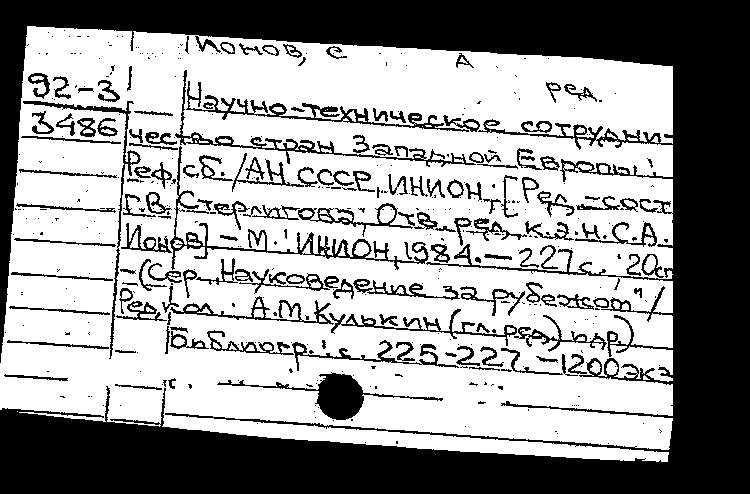 Ионов, С А
ред.
92-3 Научно-техническое сотрудни-
3486 чество стран Западной Европы:
Реф. сб. / АН СССР, ИНИОН; [Ред.-сост
Г.В. Стерлигова; Отв. ред. к.э.н. С.А.
Ионов] - М.: ИНИОН, 1984. - 227 с.; 20см
- (Сер. "Науковедение за рубежом" /
Редкол.: А.М. Кулькин (гл. ред.) и др.)
Библиогр.: с. 225-227. - 1200 экз